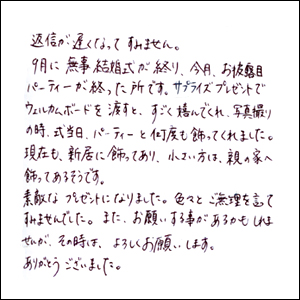 返信が遅くなってすみません。
9月に無事結婚式が終り、今月、お披露目
パーティーが終った所です。サプライズプレゼントで
ウェルカムボードを渡すと、すごく喜んでくれ、写真撮り
の時、式当日、パーティーと何度も飾ってくれました。
現在も、新居に飾ってあり、小さい方は、親の家へ
飾ってあるそうです。
素敵なプレゼントになりました。色々とご無理を言って
すみませんでした。また、お願いする事があるかもしれま
せんが、その時は、よろしくお願いします。
ありがとうございました。